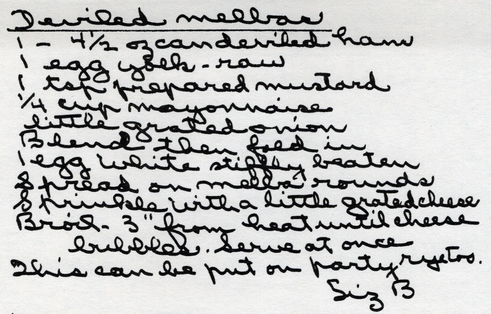 Deviled melbas
1 - 4 1/2 oz can deviled ham
1 egg yolk - raw
1 tsp prepared mustard
1/4 cup mayonnaise
little grated onion
Blend then fold in
1 egg white stiffly beaten
Spread on melba rounds
Sprinkle with a little grated cheese
Broil - 3" from heat until cheese
bubbles. Serve at once
This can be put on party rye too.
Siz B